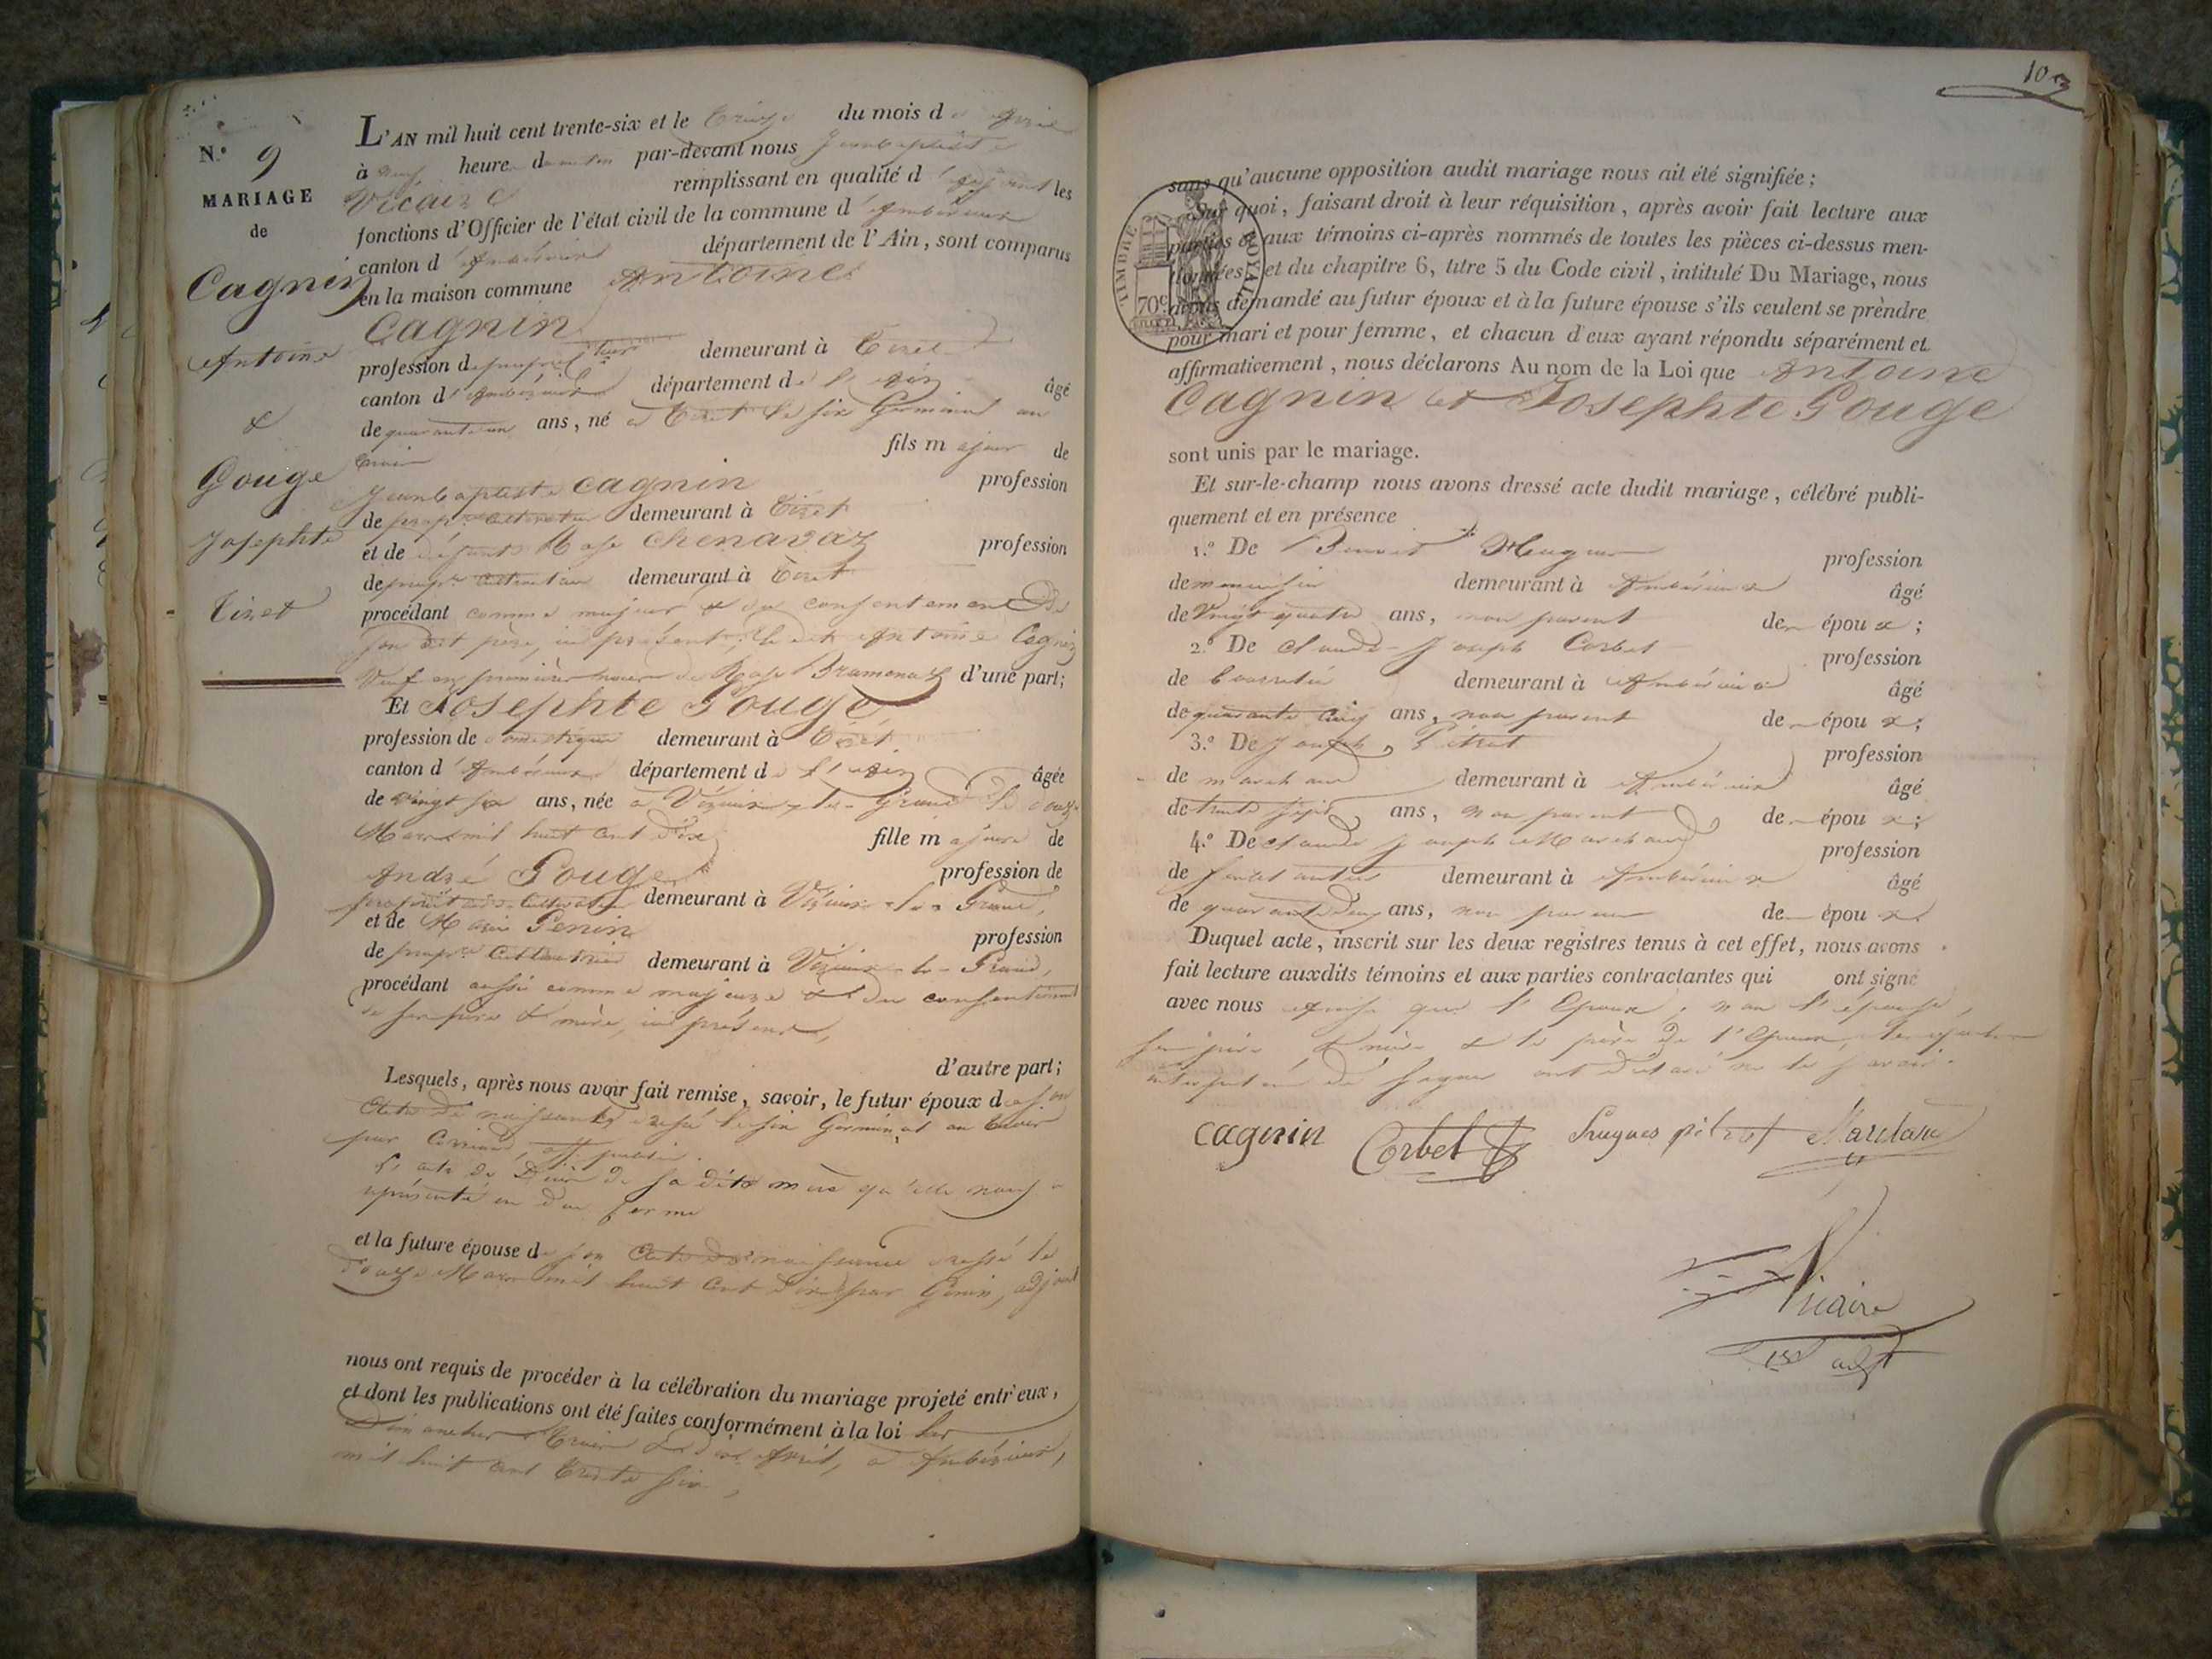 N.º 9
MARIAGE
de
Cagnin
Antoine
&
Gouge
Josephte
Tiret
L'AN mil huit cent trente-six et le treize du mois d avril
à neuf heure du matin par-devant nous Jeanbaptiste
Vicaire remplissant en qualité d'adjoint les
fonctions d'Officier de l'état civil de la commune d'Ambérieux
canton d'Ambérieux département de l'Ain, sont comparus
en la maison commune Antoine
Cagnin
profession de demeurant à Tiret
canton d'Ambérieux département de l'Ain âgé
de quarante un ans, né à Tiret le six Germinal an
trois fils majeur de
Jeanbaptiste Cagnin profession
de prop.re cultivateur demeurant à Tiret
et de défunte Rose Chenavaz profession
de prop.re cultivateur demeurant à Tiret
procédant comme majeur & du consentement de
son dit père, ici présent; le dit Antoine Cagnin
Veuf en premières noces de Rose Bramenaz d'une part;
Et Josephte Gouge
profession de domestique demeurant à Tiret
canton d'Ambérieux département de l'Ain âgée
de vingt six ans, née à Vézieux-le-Grand le douze
Mars mil huit cent dix fille majeure de
André Gouge profession de
propriétaire cultivateur demeurant à Vézieux-le-Grand,
et de Marie Penin profession
de prop.re cultivatrice demeurant à Vézieux-le-Grand,
procédant aussi comme majeure & du consentement
de ses père & mère, ici présens,
d'autre part;
Lesquels, après nous avoir fait remise, savoir, le futur époux de son
acte de naissance dressé le six Germinal an trois
par off. public.
L'acte de décès de sa dite mère qu'elle nous a
représenté en due forme
et la future épouse de son acte de naissance dressé le
douze Mars mil huit cent dix par Génin, adjoint
nous ont requis de procéder à la célébration du mariage projeté entr'eux,
et dont les publications ont été faites conformément à la loi les
Dimanches trois & dix Avril, à Ambérieux,
mil huit cent trente six,
103
sans qu'aucune opposition audit mariage nous ait été signifiée;
Sur quoi, faisant droit à leur réquisition, après avoir fait lecture aux
parties & aux témoins ci-après nommés de toutes les pièces ci-dessus men-
tionnées, et du chapitre 6, titre 5 du Code civil, intitulé Du Mariage, nous
avons demandé au futur époux et à la future épouse s'ils veulent se prèndre
pour mari et pour femme, et chacun d'eux ayant répondu séparément et
affirmativement, nous déclarons Au nom de la Loi que Antoine
Cagnin et Josephte Gouge
TIMBRE ROYAL
70c
sont unis par le mariage.
Et sur-le-champ nous avons dressé acte dudit mariage, célébré publi-
quement et en présence
1.º De Benoit Hugues profession
de menuisier demeurant à Ambérieux âgé
de Vingt quatre ans, non parent de époux;
2.º De Claude-Joseph Corbet profession
de bourrelier demeurant à Ambérieux âgé
de quarante cinq ans, non parent de époux;
3.º De Joseph Pitrat profession
de marchand demeurant à Ambérieux âgé
de trente sept ans, non parent de époux;
4.º De Claude Joseph Marchand profession
de demeurant à Ambérieux âgé
de quarante deux ans, non parent de époux.
Duquel acte, inscrit sur les deux registres tenus à cet effet, nous avons
fait lecture auxdits témoins et aux parties contractantes qui ont signé
avec nous Ainsi que l'époux; non l'épouse,
ses père & mère & le père de l'époux, lesquels
interpellés de signer ont déclaré ne le savoir.
cagnin Corbet hugues pitrat Marchand
Vicaire
adjt